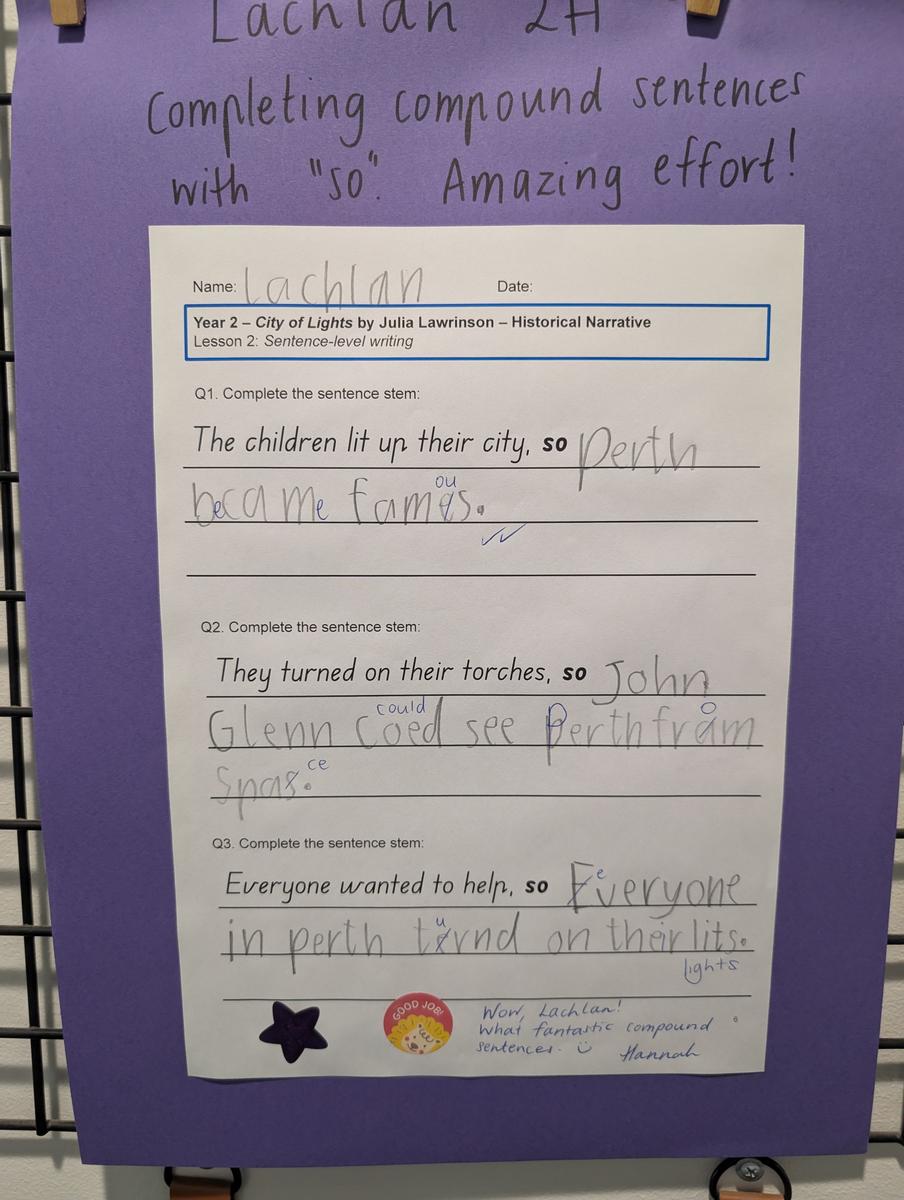 Lachlan 2H
Completing compound sentences
with "so". Amazing effort!
Name: Lachlan Date:
Year 2 – City of Lights by Julia Lawrinson – Historical Narrative
Lesson 2: Sentence-level writing
Q1. Complete the sentence stem:
The children lit up their city, so perth
ou
became famas.
Q2. Complete the sentence stem:
They turned on their torches, so John
could o
Glenn coed see Perth fram
ce
Spas.
Q3. Complete the sentence stem:
Everyone wanted to help, so Everyone
e
u
in perth trnd on their lits.
lights
GOOD JOB!
Wow, Lachlan!
What fantastic compound
sentences. Hannah